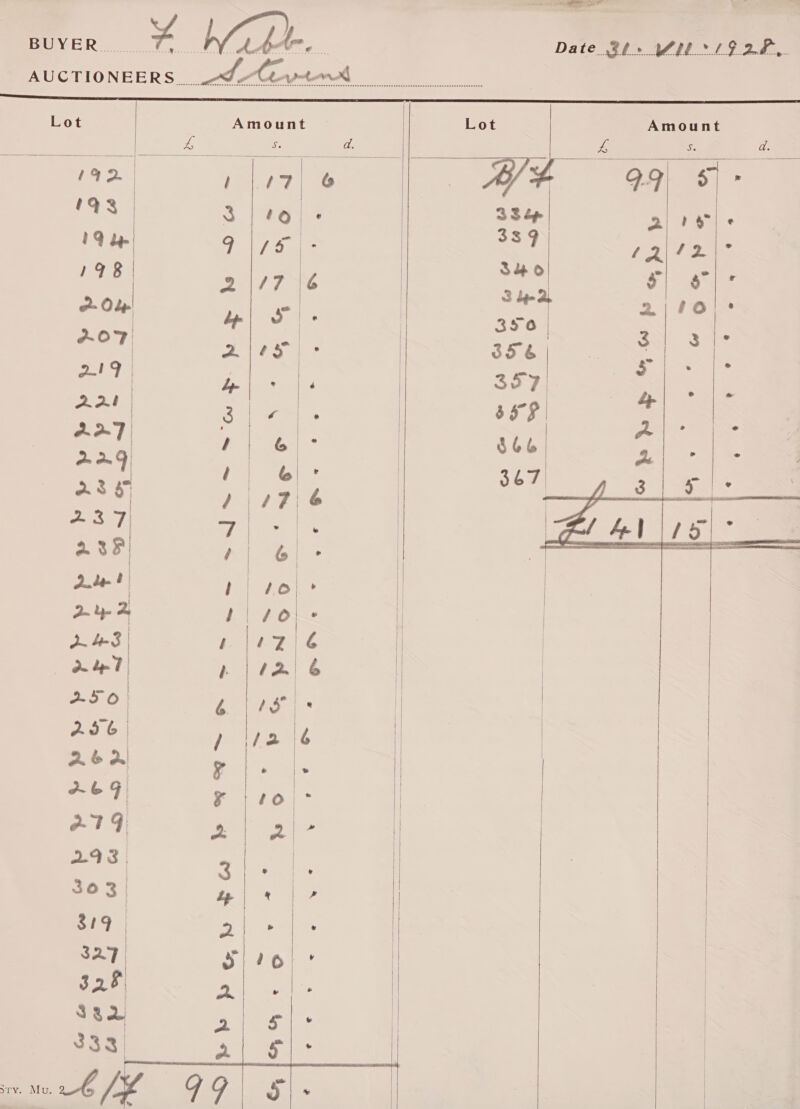 BUYER F. Webb.
Date 31. VII. 1928.
AUCTIONEERS Stevens
Lot Amount
£ s. d.
192 1 17 6
193 3 10 -
194 9 15 -
198 2 17 6
204 4 5 -
207 2 15 -
219 4 - -
221 3 - -
227 1 6 -
229 1 6 -
235 1 17 6
237 7 - -
238 1 6 -
241 1 10 -
242 1 10 -
243 1 17 6
247 1 12 6
250 6 15 -
256 1 12 6
262 8 - -
269 8 10 -
279 2 2 -
293 3 - -
303 4 - -
319 2 - -
327 5 10 -
328 2 - -
332 2 5 -
333 2 5 -
C/F 99 5 -
Lot Amount
£ s. d.
B/F 99 5 -
334 2 15 -
339 12 12 -
340 5 5 -
342 2 10 -
350 3 3 -
356 5 - -
357 4 - -
358 2 - -
366 2 - -
367 3 5 -
£141 15 -